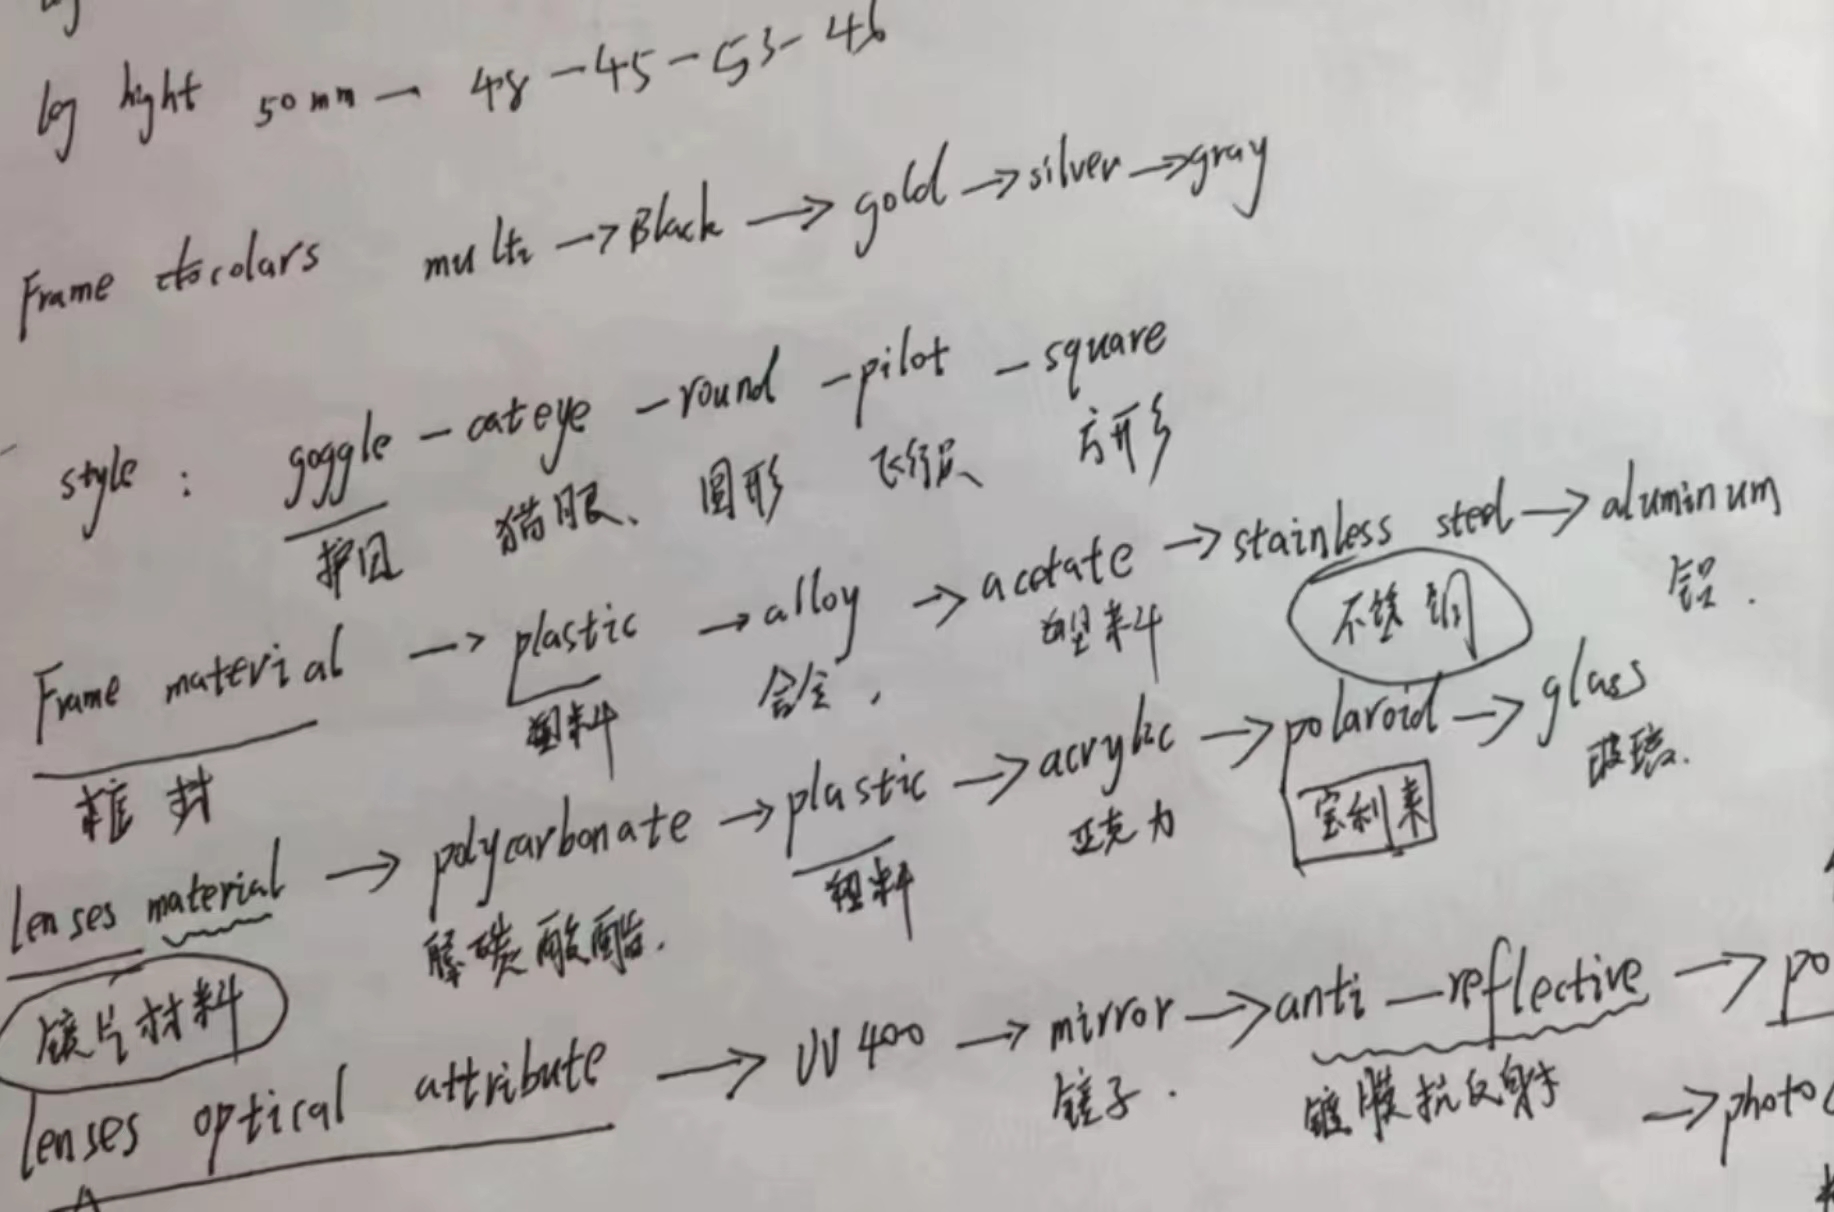 log hight 50mm — 48 — 45 — 53 — 46
Frame colars multi → Black → gold → silver → gray
style : goggle — cateye — round — pilot — square
护目 猫眼、 圆形 飞行员、 方形
Frame material → plastic → alloy → acetate → stainless steel → aluminum
塑料 合金, 塑料 不锈钢 铝.
框材
Lenses material → polycarbonate → plastic → acrylic → polaroid → glass
聚碳酸酯. 塑料 亚克力 宝利来 玻璃.
镜片材料
Lenses optical attribute → UV400 → mirror → anti — reflective → po
镜子. 镀膜抗反射
→ photo